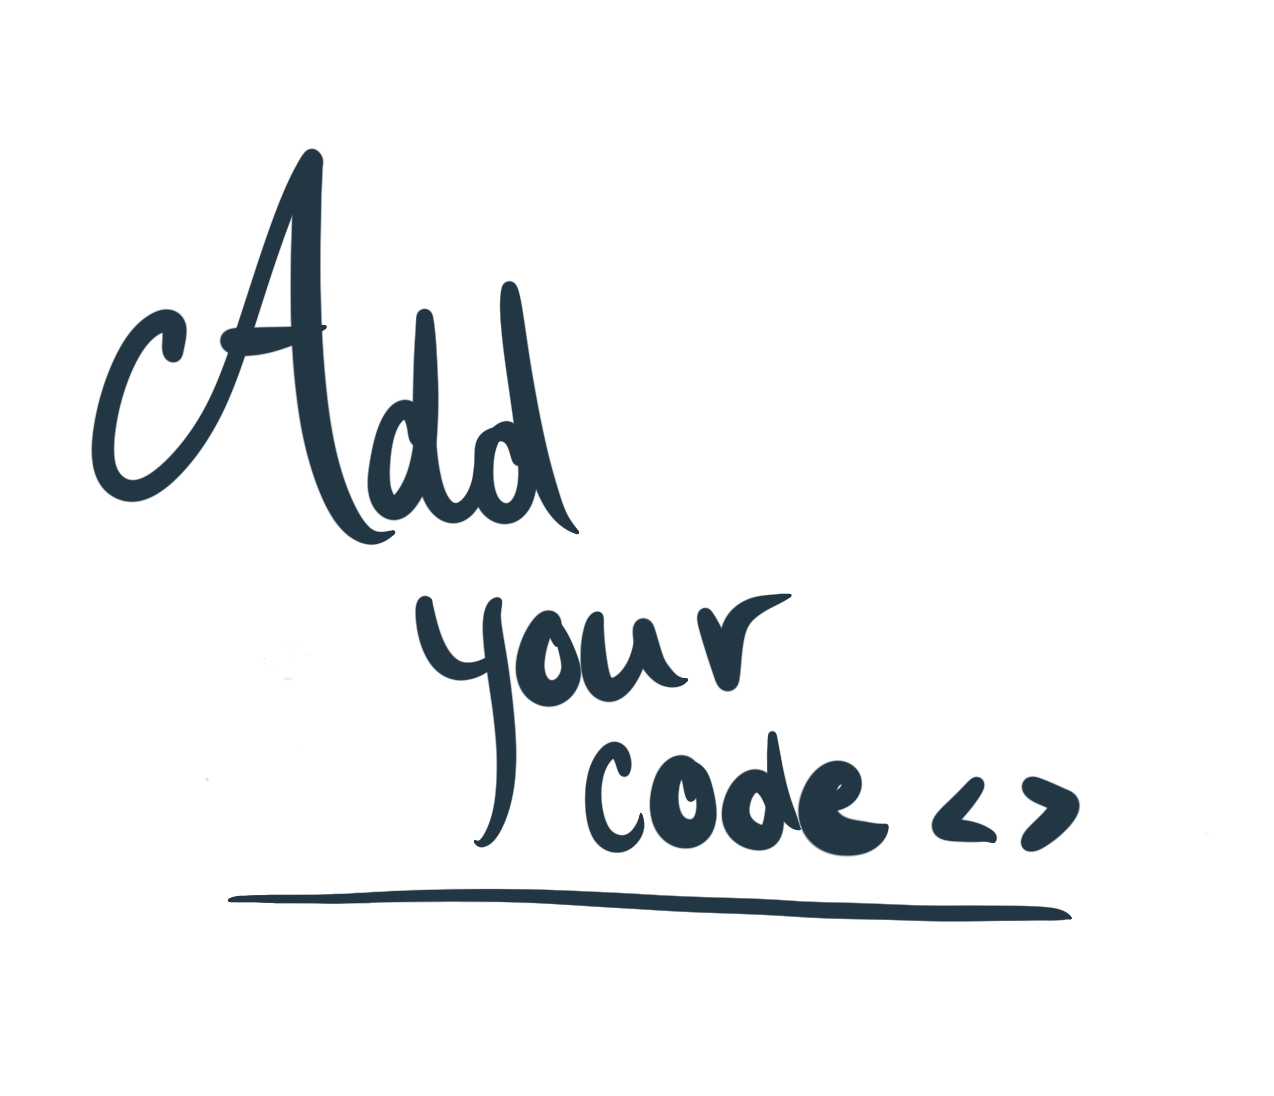 Add
your
code <>